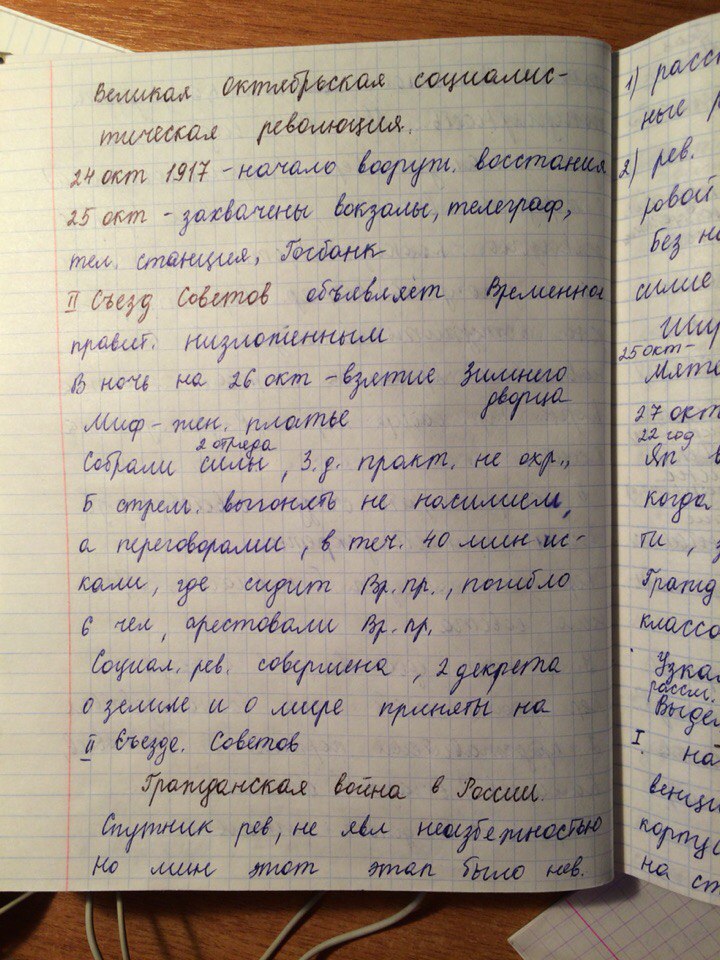 Великая Октябрьская социалис-
тическая революция.
24 окт 1917 - начало вооруж. восстания
25 окт - захвачены вокзалы, телеграф,
тел. станция, Госбанк
II Съезд Советов объявляет Временное
правит. низложенным
В ночь на 26 окт - взятие Зимнего
дворца
Миф - жен. платье
2 отряда
Собрали силы, З.д. практ. не охр.,
Б стрем. выгонять не насилием,
а переговорами, в теч. 40 мин ис-
кали, где сидит Вр. пр., погибло
6 чел, арестовали Вр. пр.
Социал. рев. совершена, 2 декрета
о земле и о мире приняты на
II Съезде Советов
Гражданская война в России.
Спутник рев, не явл неизбежностью
Но мин этот этап было нев.
1) расс
ные р
2) рев.
ровой
без н
силие
Шир
25 окт-
Мяте
27 окт
22 год
Яп в
когда
ти, з
Гражд
классо
Узкая
рассм.
Выдел
I. на
венци
корпус
на ст